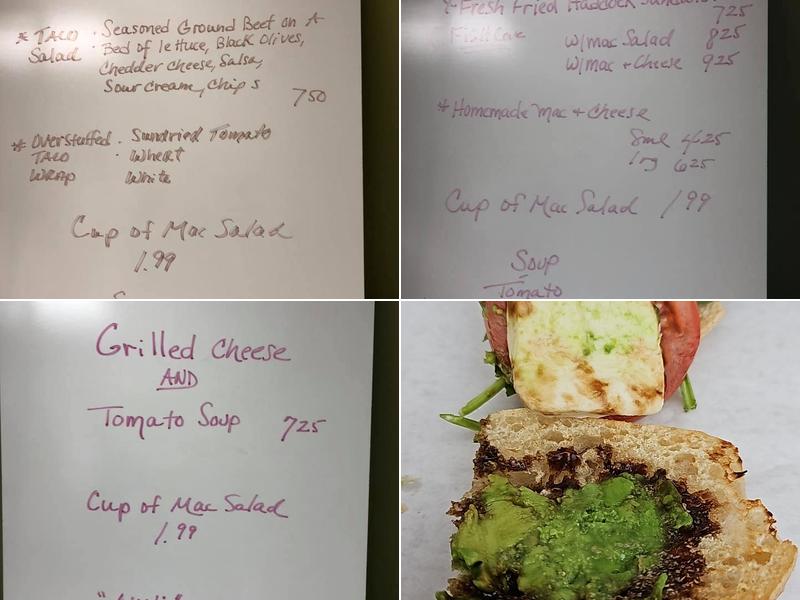 * Taco · Seasoned Ground Beef on A
Salad · Bed of lettuce, Black Olives,
Chedder Cheese, Salsa,
Sour Cream, Chips
750
* Overstuffed · Sundried Tomato
Taco · Wheat
Wrap White
Cup of Mac Salad
1.99
Fresh Fried Haddock
725
w/mac Salad 825
w/mac + Cheese 925
* Homemade Mac + Cheese
Sml 4.625
lrg 625
Cup of Mac Salad 1.99
Soup
Tomato
Grilled Cheese
AND
Tomato Soup 725
Cup of Mac Salad
1.99